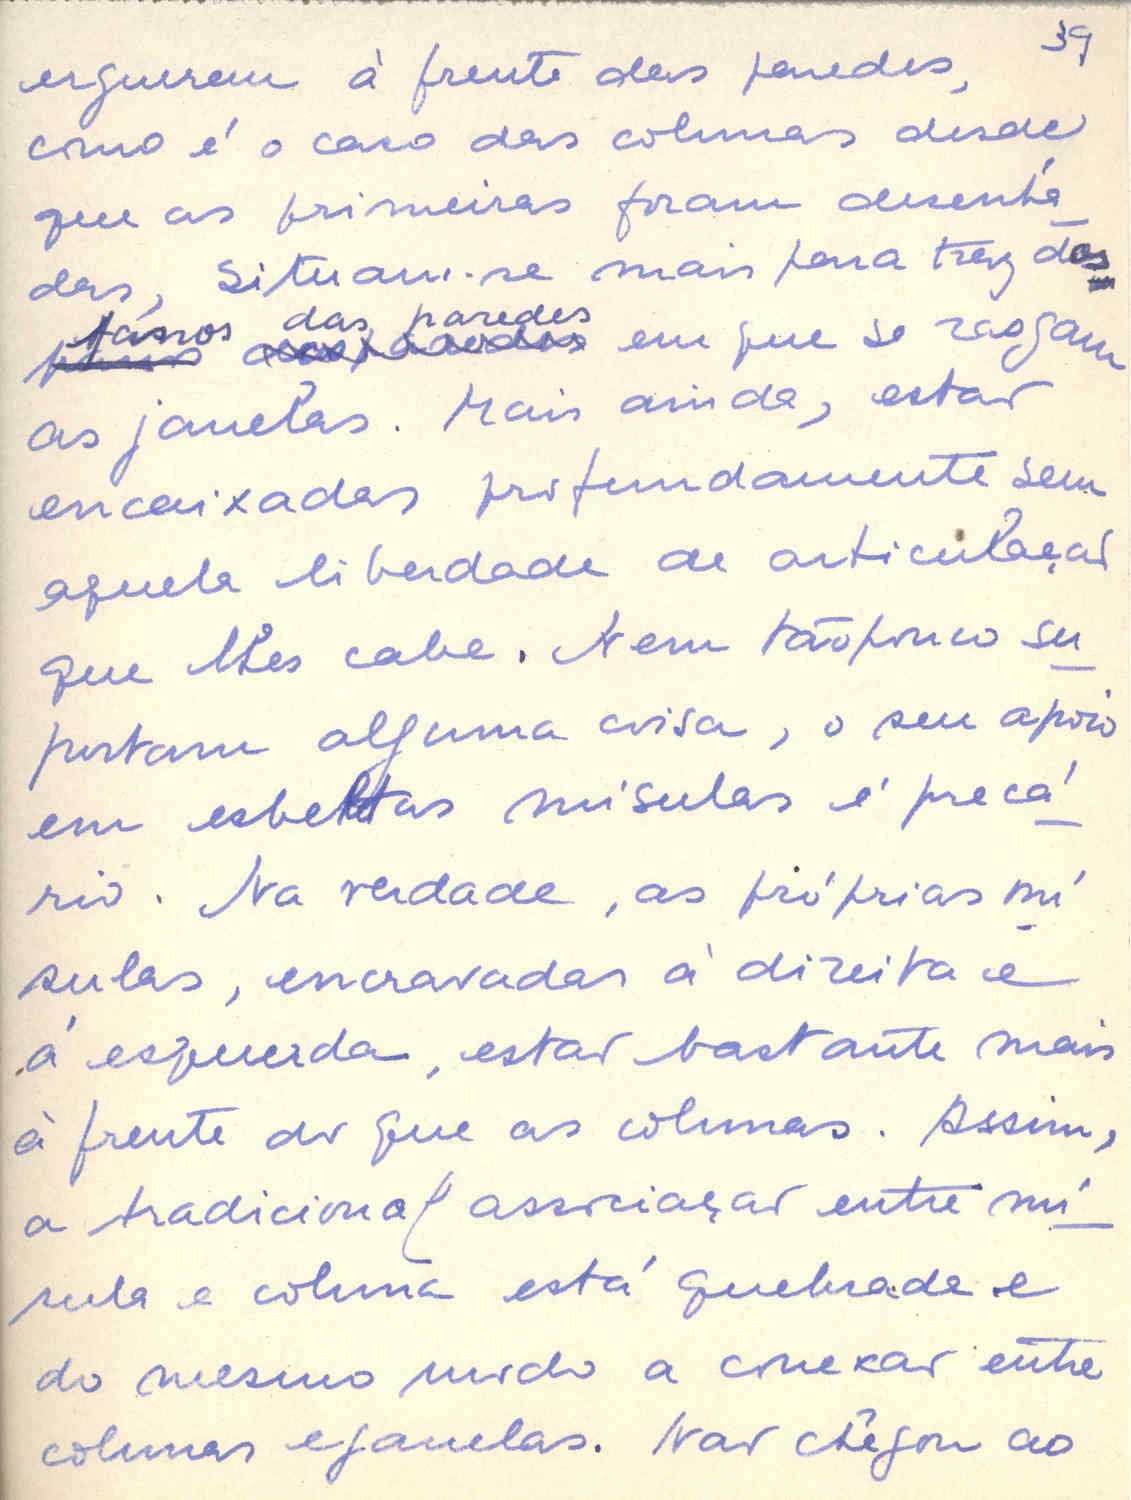 39
ergueram à frente das paredes,
como é o caso das colunas desde
que as primeiras foram desenha
das, situam-se mais para traz dos
panos das paredes em que se rasgam
as janelas. Mais ainda, estão
encaixadas profundamente sem
aquela liberdade de articulação
que lhes cabe. Nem tãopouco su
portam alguma coisa, o seu apoio
em esbeltas mísulas é precá
rio. Na verdade, as próprias mí
sulas, encravadas à direita e
à esquerda, estão bastante mais
à frente do que as colunas. Assim,
a tradicional associação entre mí
sula e coluna está quebrada e
do mesmo modo a conexão entre
colunas e janelas. Não chegou ao